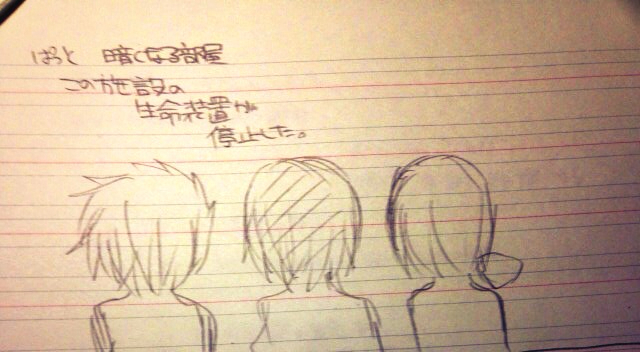 ぱっと 暗くなる部屋
この施設の
生命装置が
停止した。